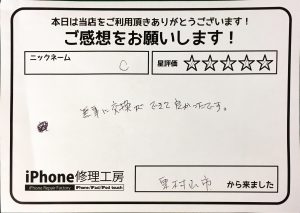 本日は当店をご利用頂きありがとうございます！
ご感想をお願いします！
ニックネーム
C
星評価 ☆☆☆☆☆
無事に交換ができて良かったです。
iPhone修理工房
iPhone Repair Factory iPhone/iPad/iPod touch
東村山市 から来ました